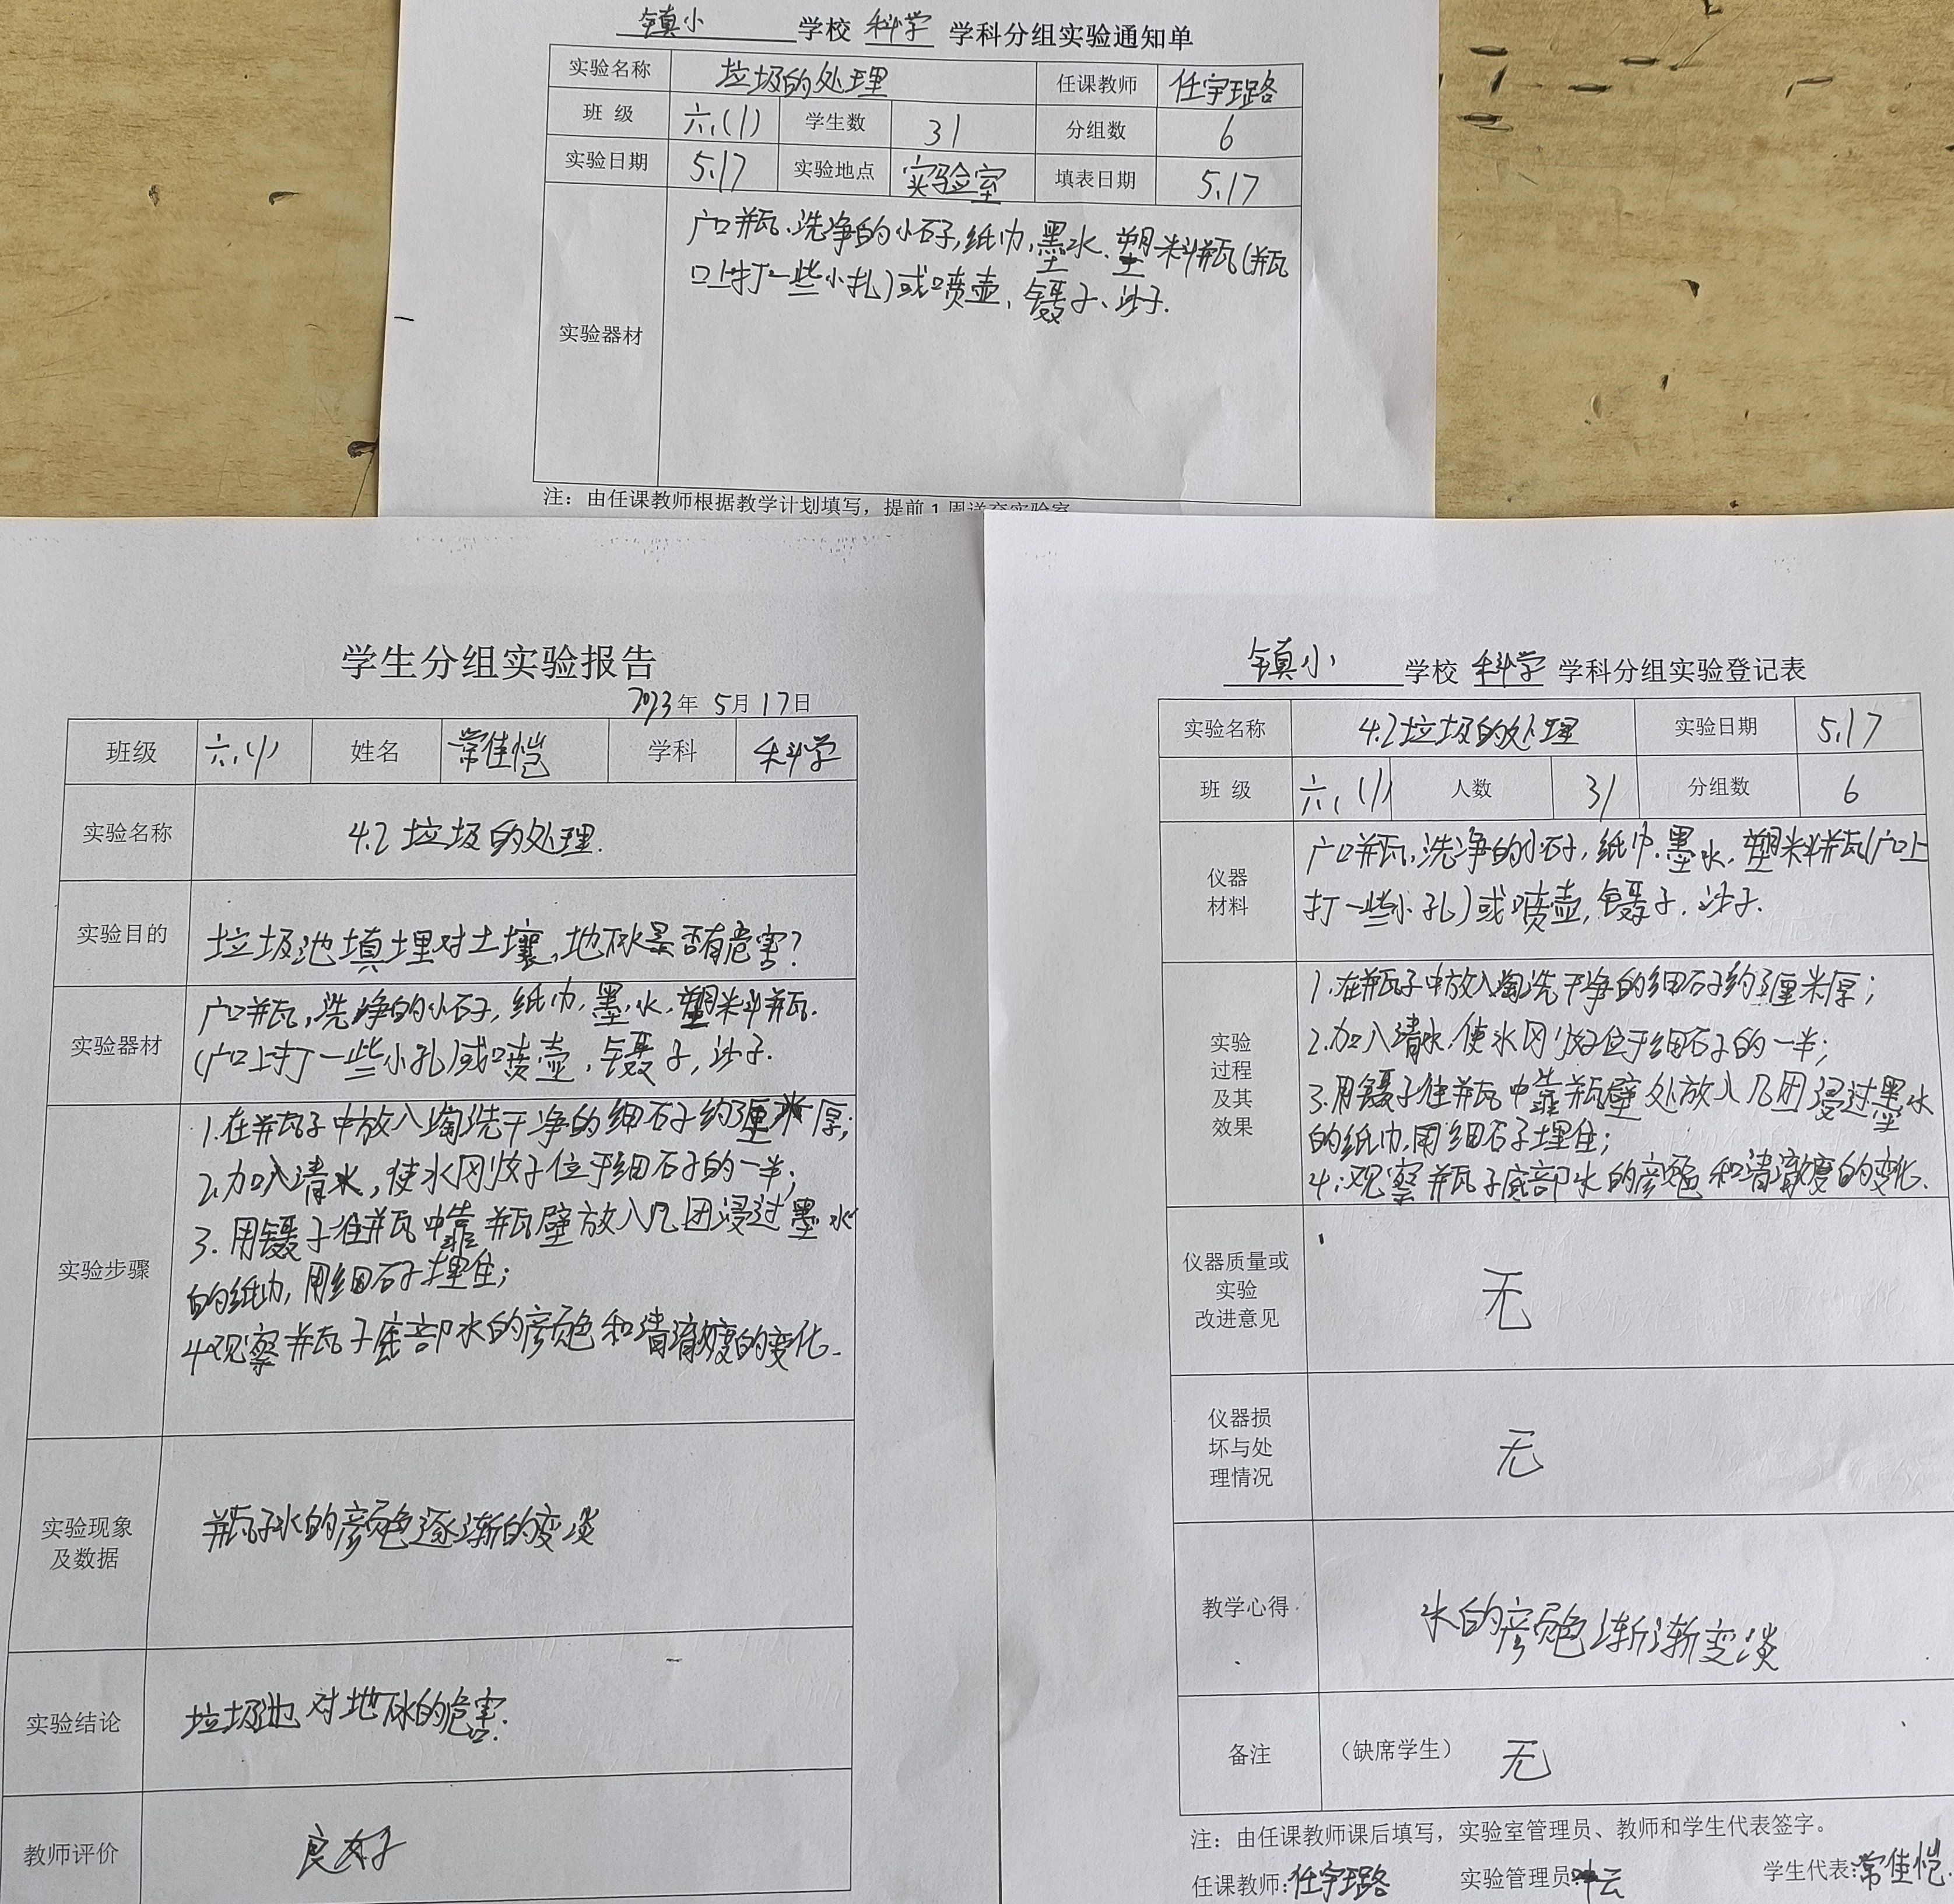 镇小 学校 科学 学科分组实验通知单
实验名称 垃圾的处理 任课教师 任宇璐
班 级 六.(1) 学生数 31 分组数 6
实验日期 5.17 实验地点 实验室 填表日期 5.17
实验器材
广口瓶、洗净的小石子,纸巾,墨水、塑料瓶(瓶
口上打一些小孔)或喷壶、镊子、沙子.
注：由任课教师根据教学计划填写，提前1周送交实验室
学生分组实验报告
2023年 5月17日
班级 六.(1) 姓名 常佳恺 学科 科学
实验名称 4.2 垃圾的处理.
实验目的 垃圾池填埋对土壤,地下水是否有危害?
实验器材
广口瓶,洗净的小石子,纸巾,墨水,塑料瓶.
(广口上打一些小孔)或喷壶,镊子,沙子.
实验步骤
1.在瓶子中放入淘洗干净的细石子约3厘米厚;
2.加入清水,使水刚好位于细石子的一半;
3.用镊子往瓶中靠瓶壁放入几团浸过墨水
的纸巾,用细石子埋住;
4.观察瓶子底部水的颜色和清澈度的变化.
实验现象
及数据
瓶子水的颜色逐渐的变淡
实验结论 垃圾池对地下水的危害.
教师评价 良好
镇小 学校 科学 学科分组实验登记表
实验名称 4.2垃圾的处理 实验日期 5.17
班 级 六.(1) 人数 31 分组数 6
仪器
材料
广口瓶,洗净的小石子,纸巾.墨水,塑料瓶(广口上
打一些小孔)或喷壶,镊子.沙子.
实验
过程
及其
效果
1.在瓶子中放入淘洗干净的细石子约3厘米厚;
2.加入清水,使水刚好位于细石子的一半;
3.用镊子往瓶中靠瓶壁处放入几团浸过墨水
的纸巾,用细石子埋住;
4.观察瓶子底部水的颜色和清澈度的变化.
仪器质量或
实验
改进意见
无
仪器损
坏与处
理情况
无
教学心得 水的颜色渐渐变淡
备注 （缺席学生） 无
注：由任课教师课后填写，实验室管理员、教师和学生代表签字。
任课教师:任宇璐 实验管理员:叶云 学生代表:常佳恺.